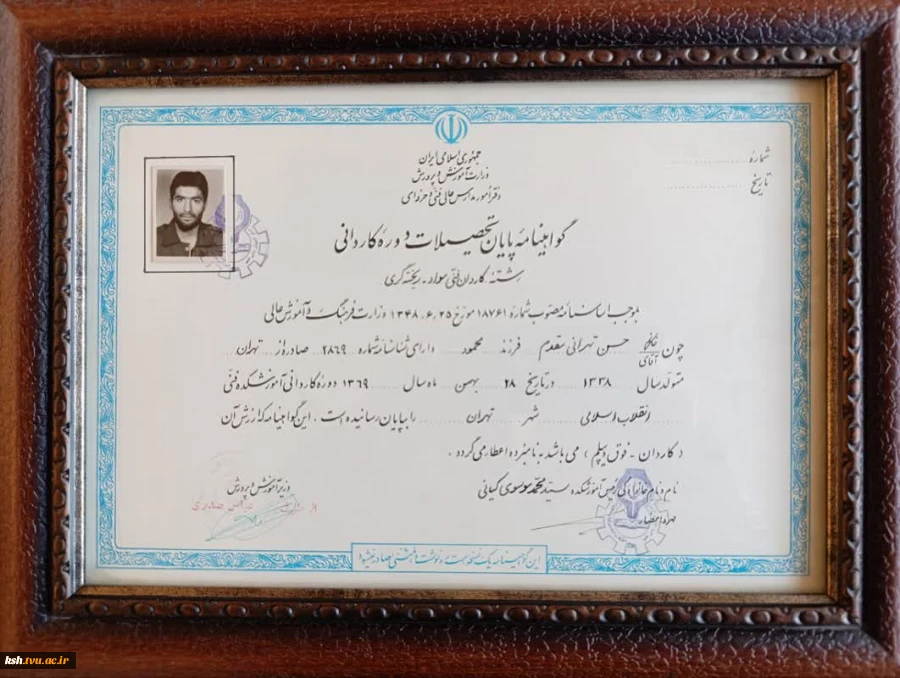 جمهوری اسلامی ایران
وزارت آموزش و پرورش
دفتر امور مدارس عالی فنی و حرفه‌ای
شماره
تاریخ
گواهینامه پایان تحصیلات دوره کاردانی
رشته: کاردان فنی مواد - ریخته گری
بموجب اساسنامه مصوب شماره ۱۸۷۶۱ مورخ ۱۳۴۸.۶.۲۵ وزارت فرهنگ و آموزش عالی
چون خانم آقای حسن تهرانی مقدم فرزند محمود دارای شناسنامه شماره ۲۸۶۹ صادره از تهران
متولد سال ۱۳۳۸ در تاریخ ۲۸ بهمن ماه سال ۱۳۶۹ دوره کاردانی آموزشکده فنی
انقلاب اسلامی شهر تهران را بپایان رسانیده است . این گواهینامه که ارزش آن
( کاردان - فوق دیپلم ) می باشد به نامبرده اعطا می گردد .
نام و نام خانوادگی رئیس آموزشکده سید محمد موسوی کیانی
مهر و امضاء
وزیر آموزش و پرورش
از طرف عباس صدری
این گواهینامه یک نسخه است و رونوشت یا المثنی صادر نمیشود
ksh.tvu.ac.ir